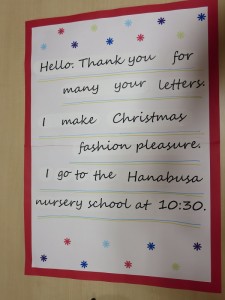 Hello. Thank you for
many your letters.
I make Christmas
fashion pleasure.
I go to the Hanabusa
nursery school at 10:30.